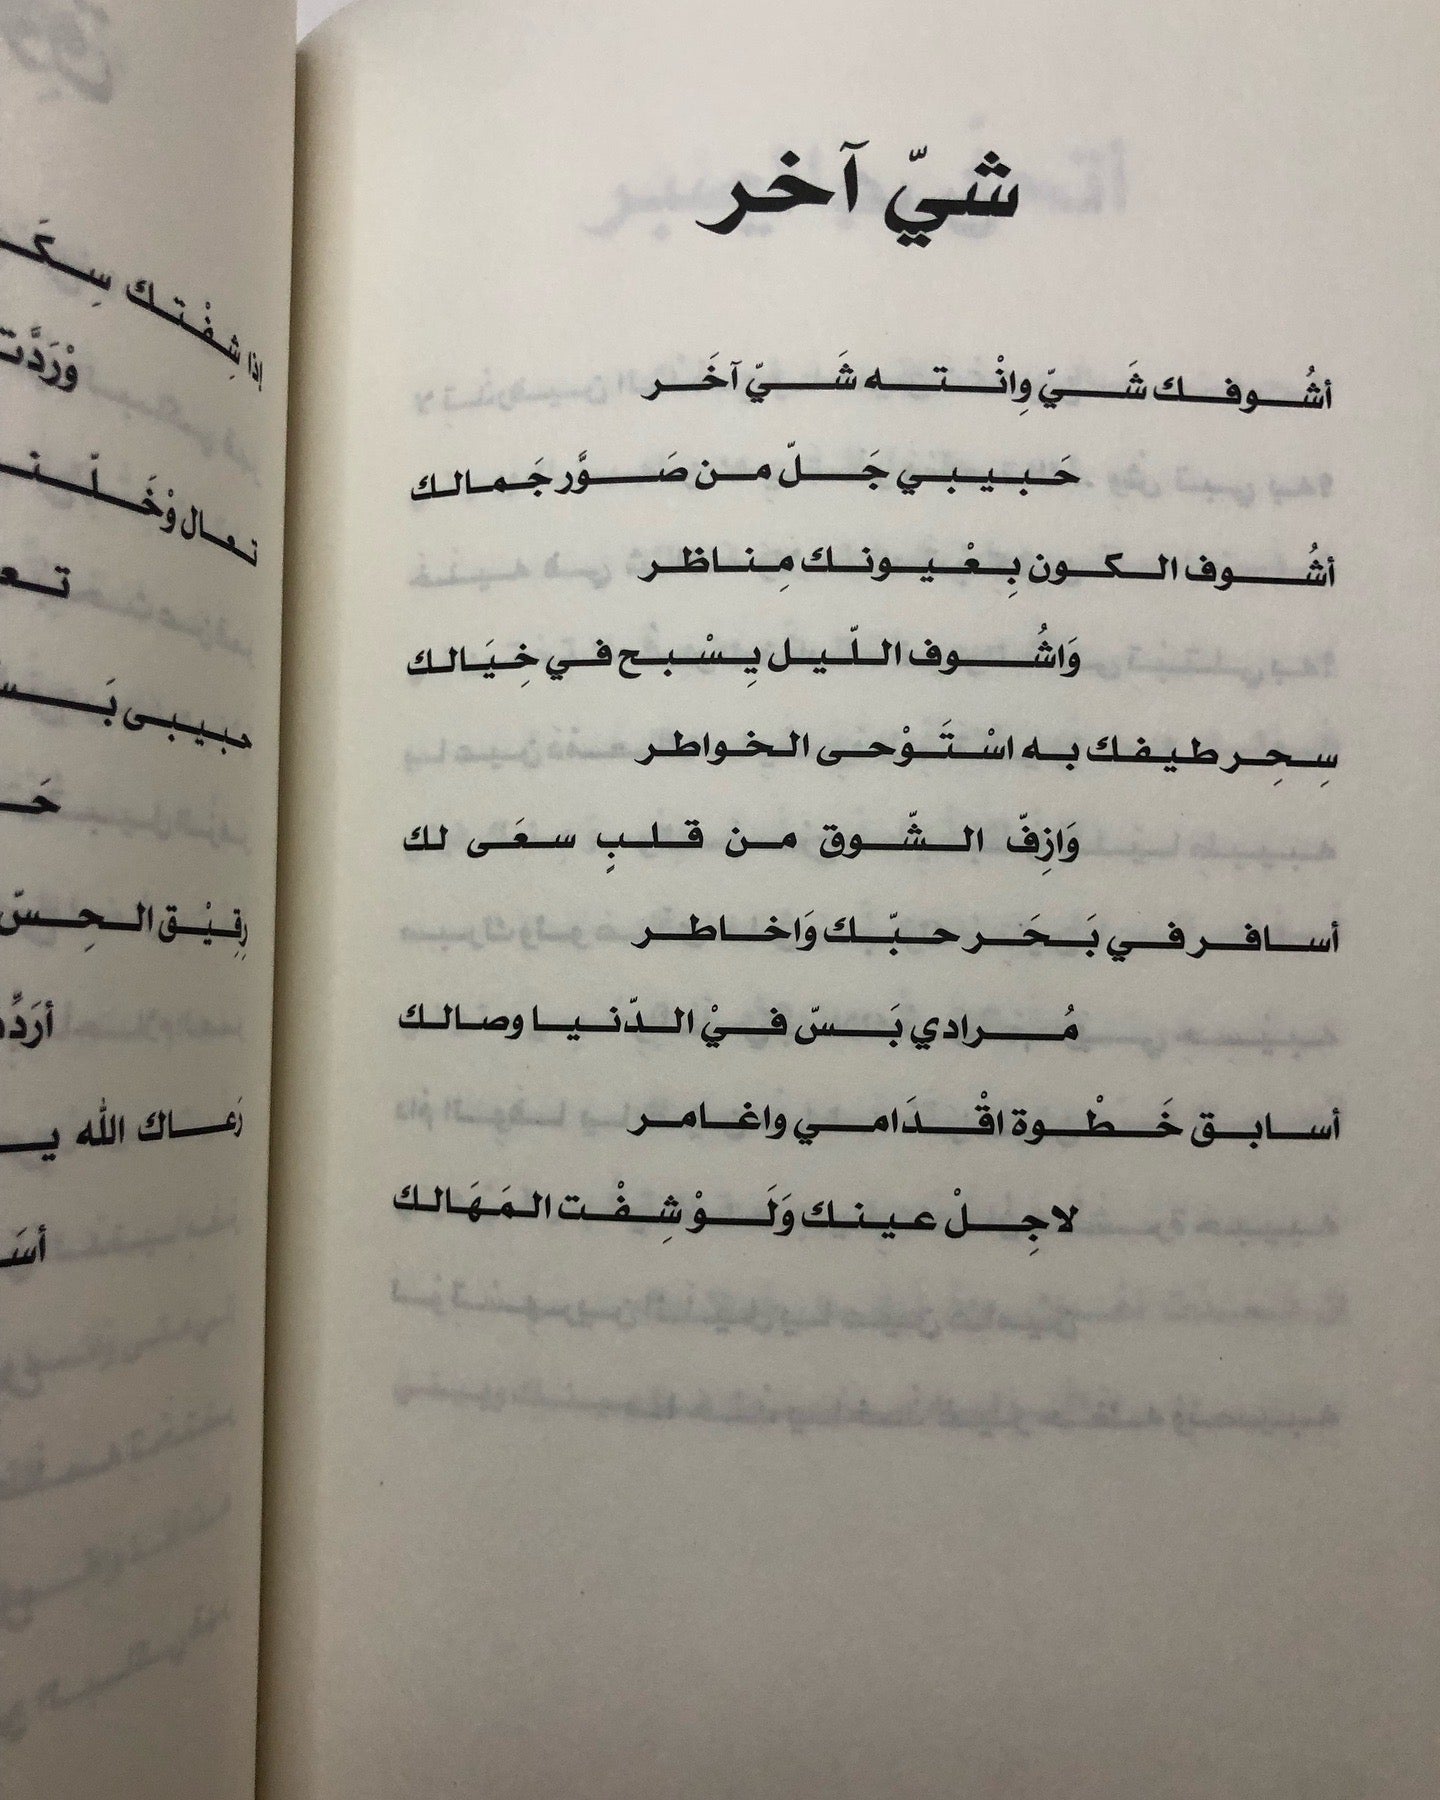 شيّ آخر
أشُوفك شَيّ وِانْته شَيّ آخَر
حَبيبي جَلّ من صَوَّر جَمالك
أشُوف الكون بِعْيونك مِناظر
وَاشُوف اللّيل يِسْبح في خِيَالك
سِحِر طيفك به اسْتَوْحى الخواطر
وَازِفّ الشّوق من قلبٍ سعَى لك
أسافر في بَحَر حبّك وَاخاطر
مُرادي بَسّ فيْ الدّنيا وصالك
أسابق خَطْوة اقْدَامي واغامر
لاجِلْ عينك وَلَوْ شِفْت المَهَالك
إذا شِفْتك
وْرَدَّت
تعال وْخَلّنـ
تعـ
حبيبى بَسـ
حَـ
رِقِيْق الحِسّ
أرَدِّد
رَعاك الله يـ
أسَـ